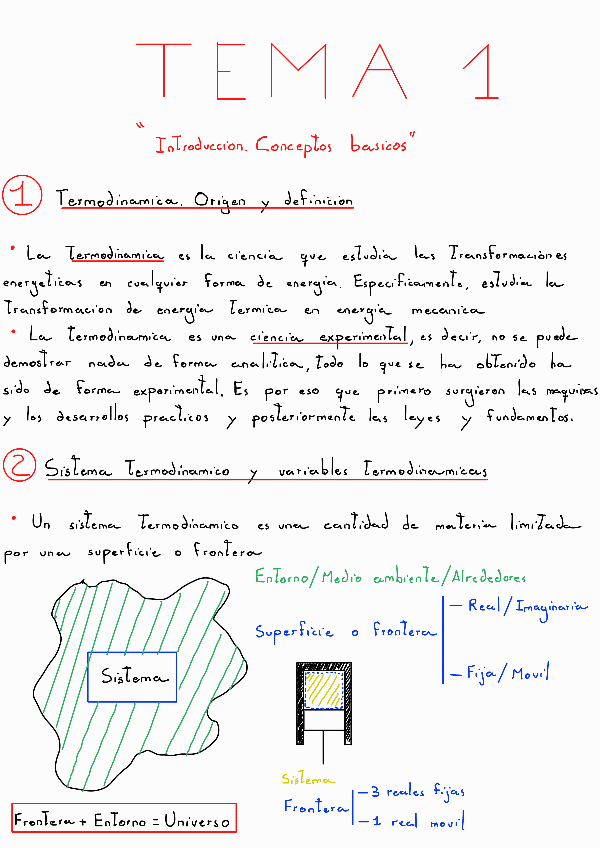 TEMA 1
"Introduccion. Conceptos basicos"
1 Termodinamica. Origen y definicion
• La Termodinamica es la ciencia que estudia las Transformaciones
energeticas en cualquier forma de energia. Especificamente, estudia la
Transformacion de energia Termica en energia mecanica
• La Termodinamica es una ciencia experimental, es decir, no se puede
demostrar nada de forma analitica, todo lo que se ha obtenido ha
sido de forma experimental. Es por eso que primero surgieron las maquinas
y los desarrollos practicos y posteriormente las leyes y fundamentos.
2 Sistema Termodinamico y variables Termodinamicas
• Un sistema Termodinamico es una cantidad de materia limitada
por una superficie o frontera
Entorno/Medio ambiente/Alrededores
Superficie o frontera
— Real/Imaginaria
— Fija/Movil
Sistema
Sistema
Frontera
— 3 reales fijas
— 1 real movil
Frontera + Entorno = Universo